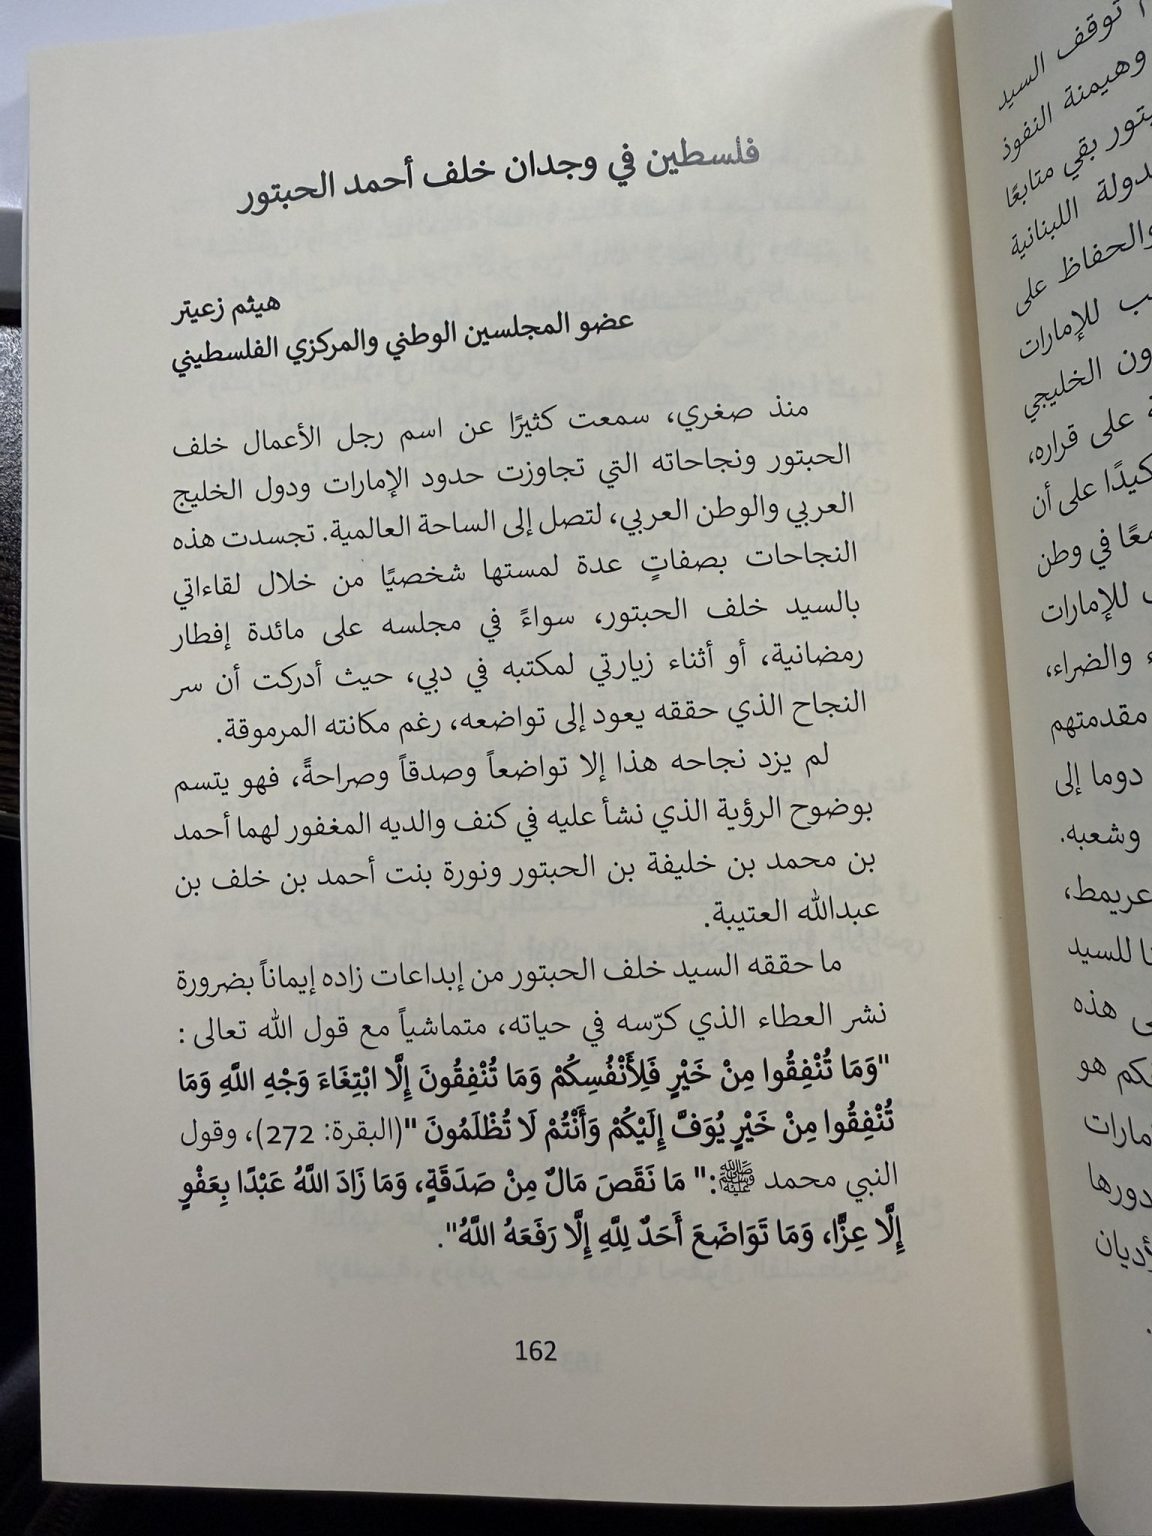 فلسطين في وجدان خلف أحمد الحبتور
هيثم زعيتر
عضو المجلسين الوطني والمركزي الفلسطيني
منذ صغري، سمعت كثيرًا عن اسم رجل الأعمال خلف
الحبتور ونجاحاته التي تجاوزت حدود الإمارات ودول الخليج
العربي والوطن العربي، لتصل إلى الساحة العالمية. تجسدت هذه
النجاحات بصفاتٍ عدة لمستها شخصيًا من خلال لقاءاتي
بالسيد خلف الحبتور، سواءً في مجلسه على مائدة إفطار
رمضانية، أو أثناء زيارتي لمكتبه في دبي، حيث أدركت أن سر
النجاح الذي حققه يعود إلى تواضعه، رغم مكانته المرموقة.
لم يزد نجاحه هذا إلا تواضعاً وصدقاً وصراحةً، فهو يتسم
بوضوح الرؤية الذي نشأ عليه في كنف والديه المغفور لهما أحمد
بن محمد بن خليفة بن الحبتور ونورة بنت أحمد بن خلف بن
عبدالله العتيبة.
ما حققه السيد خلف الحبتور من إبداعات زاده إيماناً بضرورة
نشر العطاء الذي كرّسه في حياته، متماشياً مع قول الله تعالى :
"وَمَا تُنْفِقُوا مِنْ خَيْرٍ فَلِأَنْفُسِكُمْ وَمَا تُنْفِقُونَ إِلَّا ابْتِغَاءَ وَجْهِ اللَّهِ وَمَا
تُنْفِقُوا مِنْ خَيْرٍ يُوَفَّ إِلَيْكُمْ وَأَنْتُمْ لَا تُظْلَمُونَ "(البقرة: 272)، وقول
النبي محمد ﷺ:" مَا نَقَصَ مَالٌ مِنْ صَدَقَةٍ، وَمَا زَادَ اللَّهُ عَبْدًا بِعَفْوٍ
إِلَّا عِزًّا، وَمَا تَوَاضَعَ أَحَدٌ لِلَّهِ إِلَّا رَفَعَهُ اللَّهُ".
162
توقف السيد
وهيمنة النفوذ
بقي متابعًا
اللبنانية
والحفاظ على
للإمارات
الخليجي
على قراره،
على أن
في وطن
للإمارات
والضراء،
مقدمتهم
دوما إلى
وشعبه.
عريمط،
للسيد
هذه
هو
دورها